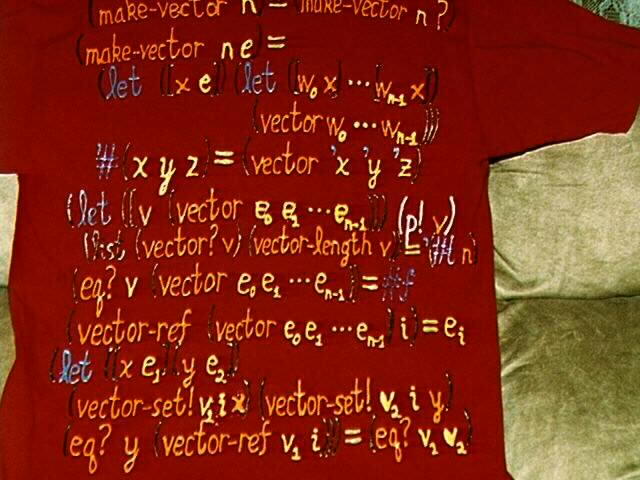 (make-vector n = make-vector n ?)
(make-vector n e) =
(let ([x e]) (let ([w0 x] ... [wn-1 x])
(vector w0 ... wn-1)))
#(x y z) = (vector 'x 'y 'z)
(let ([v (vector e0 e1 ... en-1)]) (p! v)
(list (vector? v) (vector-length v)) = '(#t n)
(eq? v (vector e0 e1 ... en-1)) = #f
(vector-ref (vector e0 e1 ... en-1) i) = ei
(let ([x e1] [y e2])
(vector-set! v1 i x) (vector-set! v2 i y)
(eq? y (vector-ref v1 i))) = (eq? v1 v2)